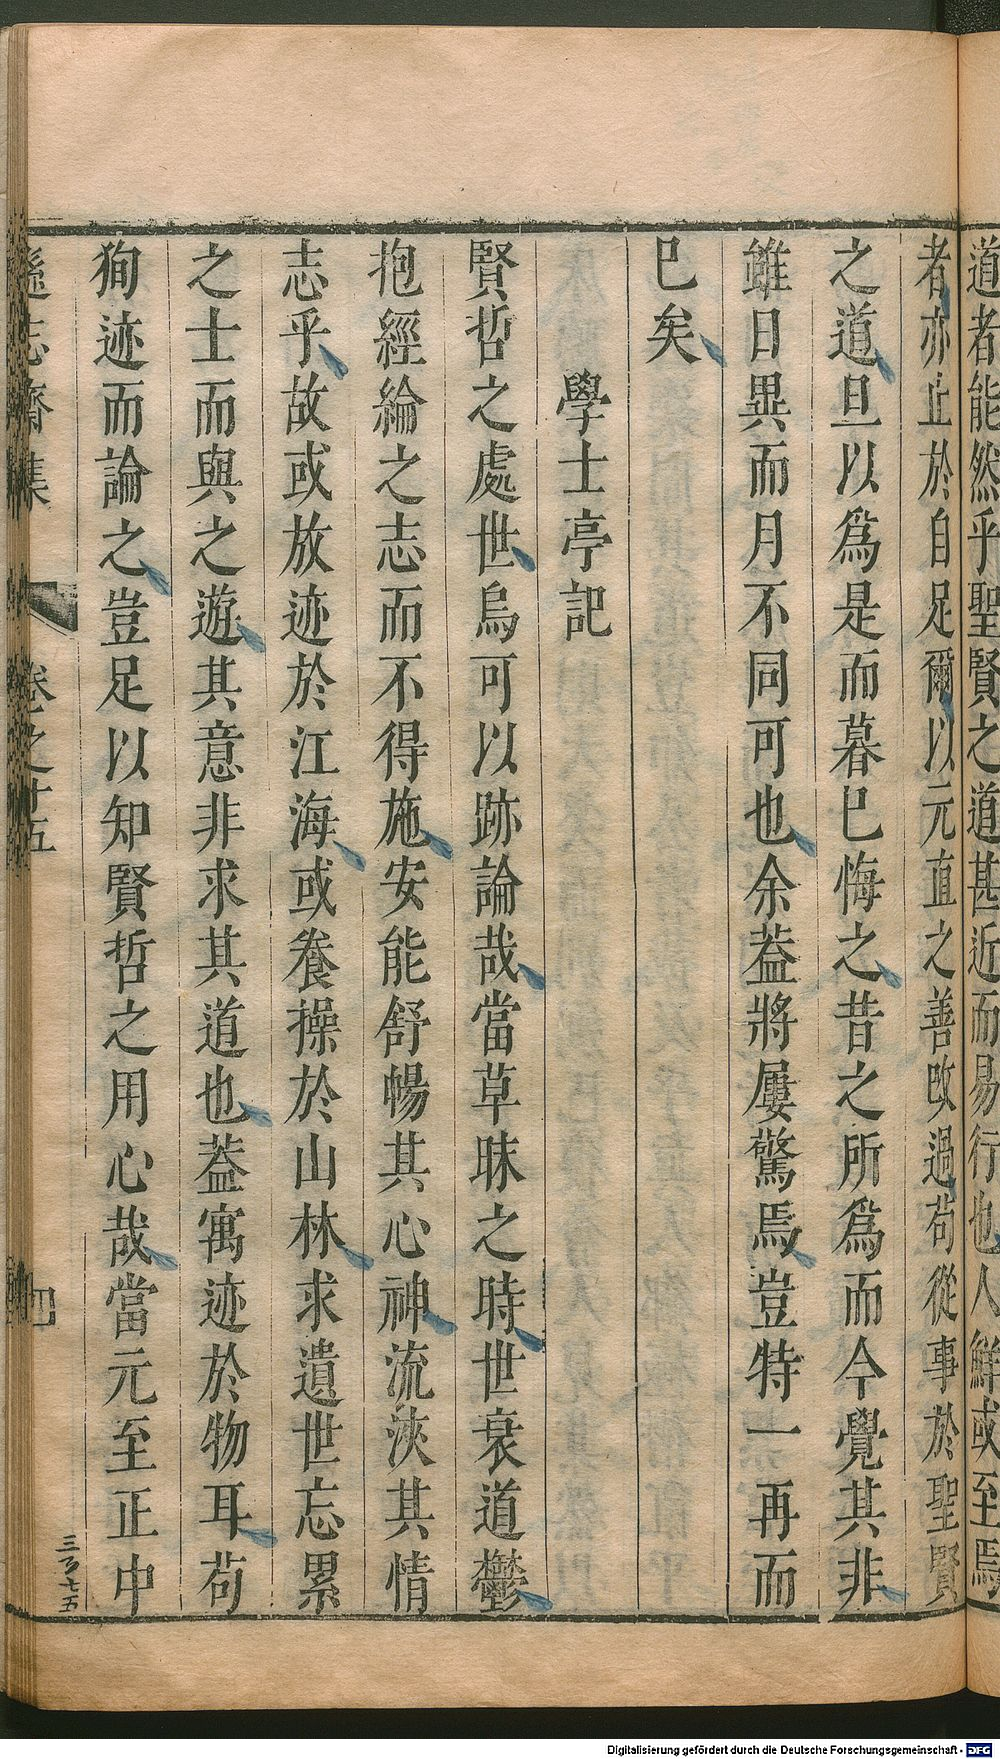 道者能然乎聖賢之道甚近而易行也人鮮或至焉
者亦止於自足爾以元直之善改過苟從事於聖賢
之道旦以爲是而暮已悔之昔之所爲而今覺其非
雖日異而月不同可也余葢將屢驚焉豈特一再而
已矣
學士亭記
賢哲之處世烏可以跡論哉當草昧之時世衰道鬱
抱經綸之志而不得施安能舒暢其心神流浹其情
志乎故或放迹於江海或養操於山林求遺世忘累
之士而與之遊其意非求其道也葢寓迹於物耳苟
狥迹而論之豈足以知賢哲之用心哉當元至正中
遜志齋集 卷之十五 四
三百七五
Digitalisierung gefördert durch die Deutsche Forschungsgemeinschaft - DFG